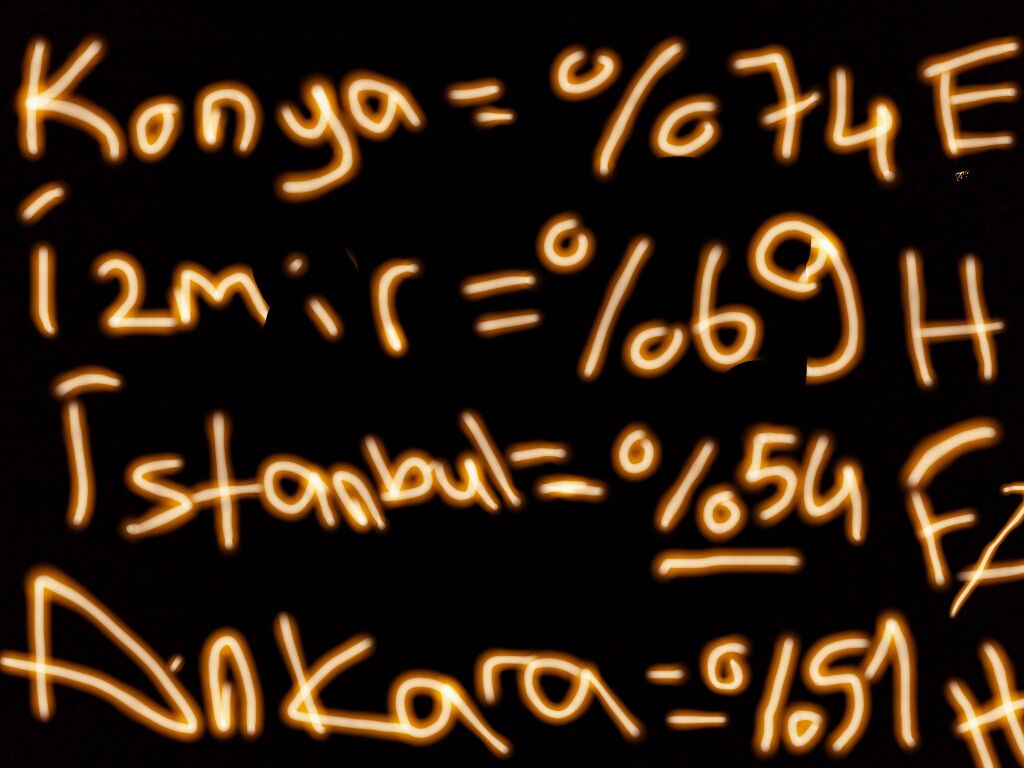 Konya = %74 E
İzmir = %69 H
İstanbul = %54
Ankara = %51 H